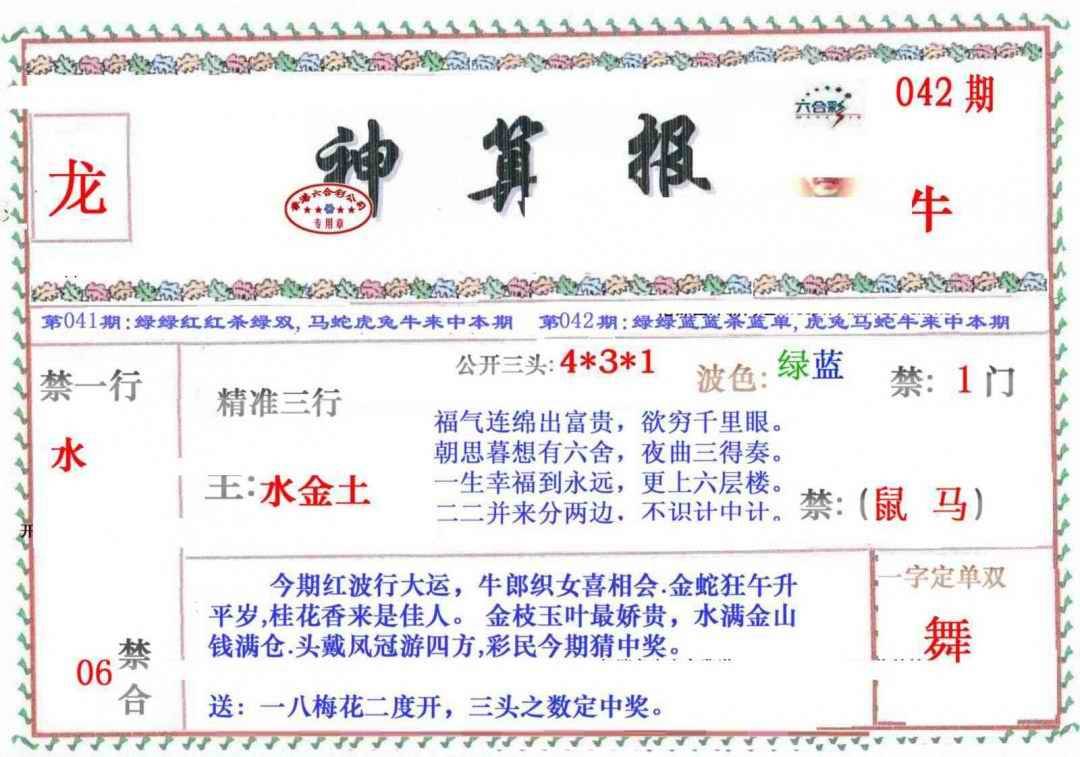 六合彩
042期
龙
神算报
香港六合彩公司
专用章
牛
第041期:绿绿红红杀绿双,马蛇虎兔牛来中本期
第042期:绿绿蓝蓝杀蓝单,虎兔马蛇牛来中本期
禁一行
水
精准三行
王:水金土
公开三头:4*3*1
波色:绿蓝
禁:1门
福气连绵出富贵，欲穷千里眼。
朝思暮想有六舍，夜曲三得奏。
一生幸福到永远，更上六层楼。
二二并来分两边，不识计中计。
禁:(鼠 马)
开
今期红波行大运，牛郎织女喜相会.金蛇狂午升
平岁,桂花香来是佳人。金枝玉叶最娇贵，水满金山
钱满仓.头戴凤冠游四方,彩民今期猜中奖。
送：一八梅花二度开，三头之数定中奖。
一字定单双
舞
06
禁合